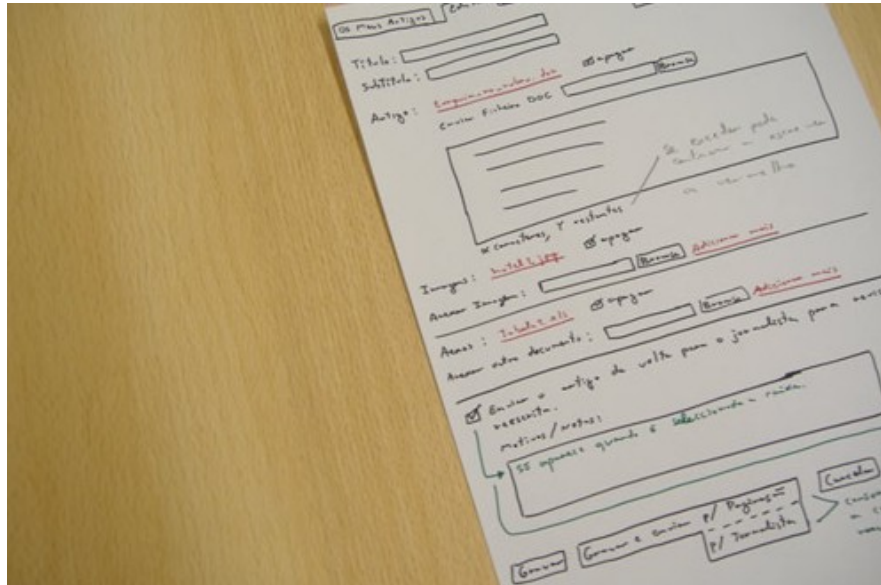 Os Meus Artigos
Título:
Subtítulo:
Artigo: apagar
Enviar Ficheiro DOC Browse
Se exceder pode
continuar a escrever
a vermelho
X caracteres, Y restantes
Imagens: hotel2.jpg apagar
Anexar Imagem: Browse Adicionar mais
Anexos: Tabela2.xls apagar
Anexar outro documento: Browse Adicionar mais
Enviar o artigo de volta para o jornalista para
reescrita.
motivos/notas:
Só aparece quando é seleccionada a caixa.
Gravar Gravar e enviar p/ Paginação Cancelar
p/ Jornalista